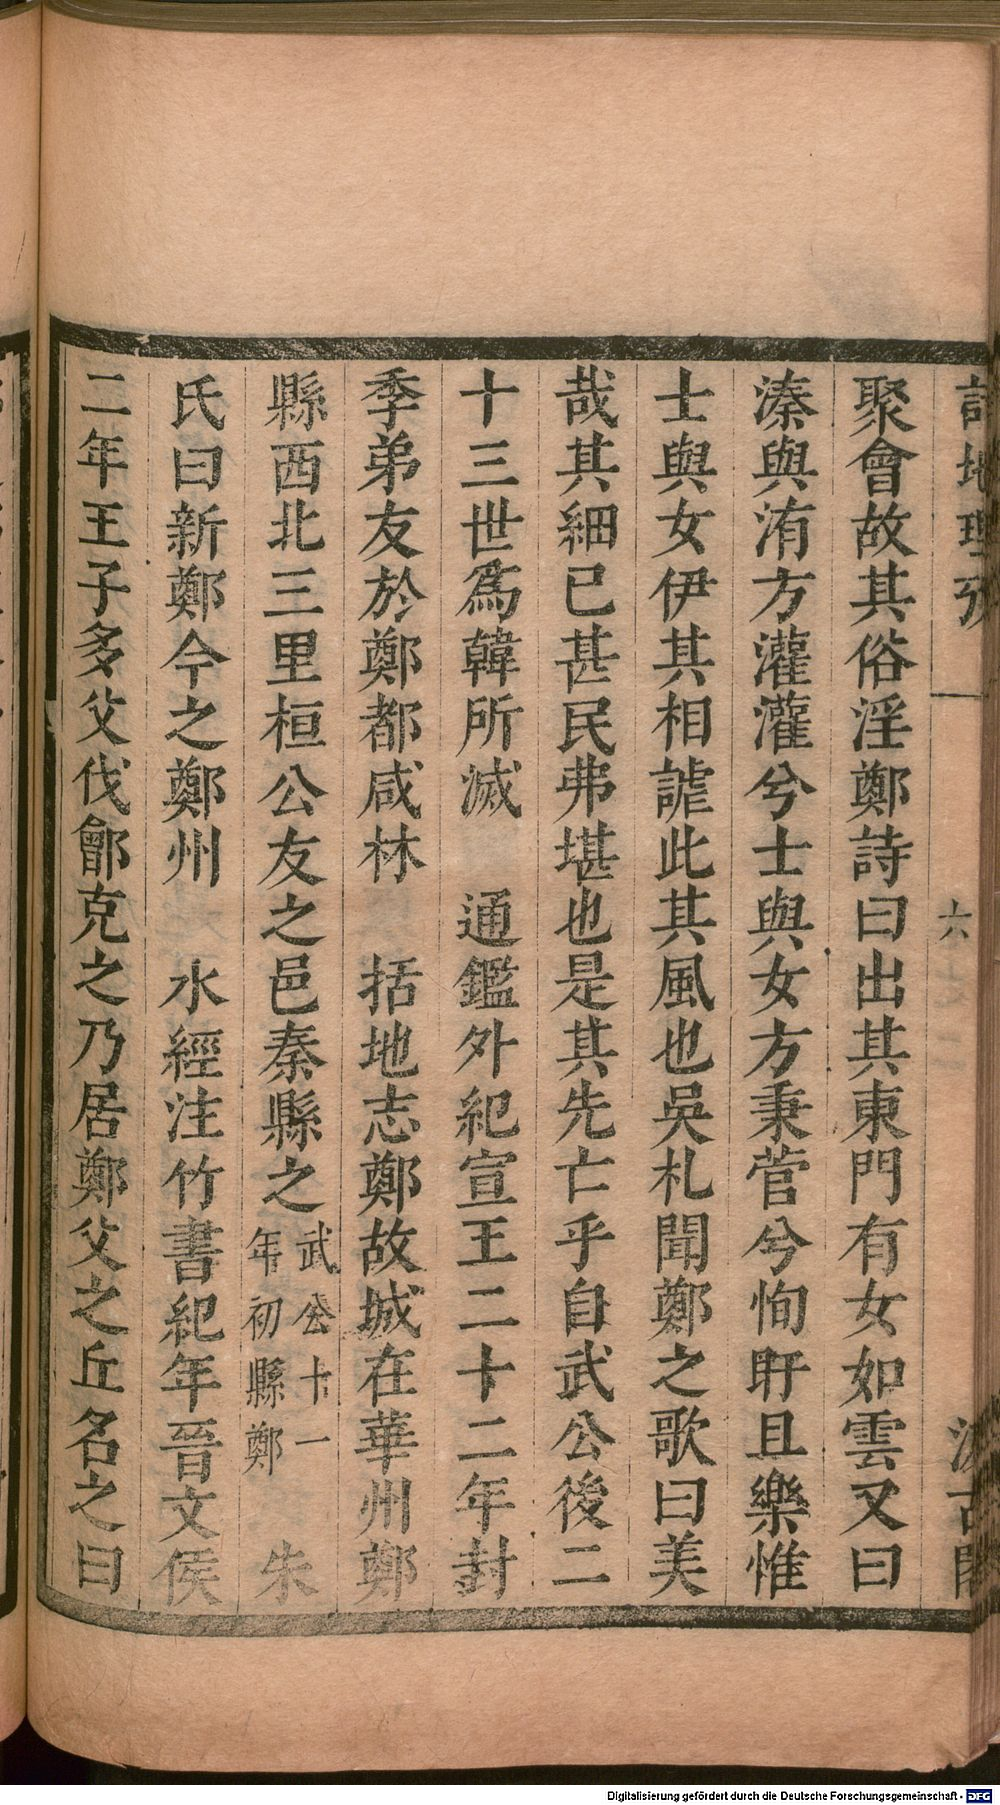 聚會故其俗淫鄭詩曰出其東門有女如雲又曰
溱與洧方灌灌兮士與女方秉菅兮恂盱且樂惟
士與女伊其相謔此其風也吳札聞鄭之歌曰美
哉其細已甚民弗堪也是其先亡乎自武公後二
十三世爲韓所滅　通鑑外紀宣王二十二年封
季弟友於鄭都咸林　括地志鄭故城在華州鄭
縣西北三里桓公友之邑秦縣之武公十一年初縣鄭　朱
氏曰新鄭今之鄭州　水經注竹書紀年晉文侯
二年王子多父伐鄶克之乃居鄭父之丘名之曰
地理攷
六
古
Digitalisierung gefördert durch die Deutsche Forschungsgemeinschaft - DFG